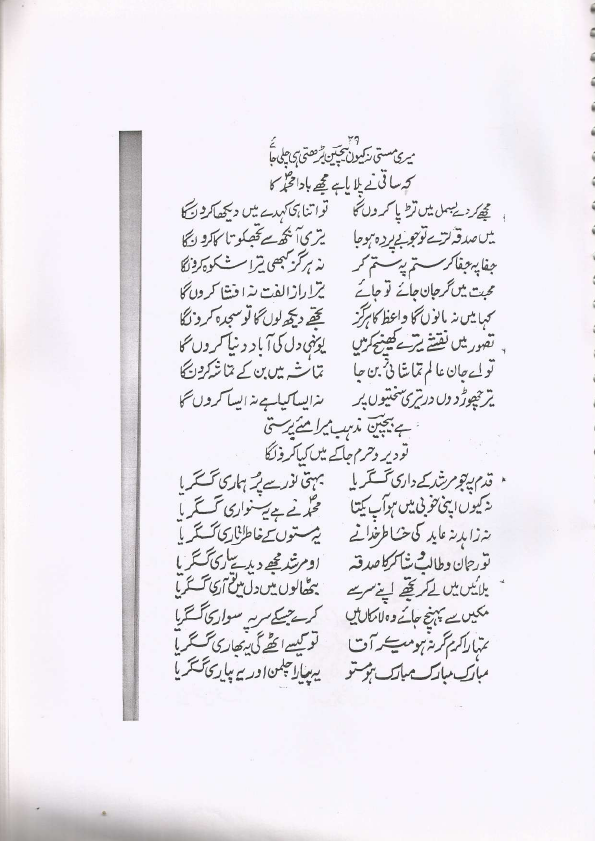 ۲۹
میری مستی نہ کیوں بیچین بڑھتی ہی چلی جائے
کہ ساقی نے پلایا ہے مجھے بادا محمدؐ کا
مجھے کر دے بسمل میں تڑپا کروں گا تو اتنا ہی کہدے میں دیکھا کرونگا
میں صدقہ ترے تو جو بے پردہ ہو جا تیری آنکھ سے تجھکو تاکا کرونگا
جفا پہ جفا کر ستم پر ستم کر نہ ہر گز کبھی تیرا شکوہ کرونگا
محبت میں گر جان جائے تو جائے تیرا راز الفت نہ افشا کروں گا
کہا میں نہ مانوں گا واعظ کا ہرگز تجھے دیکھ لوں گا تو سجدہ کرونگا
تصور میں نقشے تیرے کھینچ کر میں یونہی دل کی آباد دنیا کروں گا
تو اے جان عالم تماشائی بن جا تماشہ میں بن کے تماشہ کرونگا
تیر چھوڑ دوں در تیری سختیوں پر نہ ایسا کیا ہے نہ ایسا کروں گا
ہے بیچین مذہب میرا مئے پرستی
تو دیر و حرم جا کے میں کیا کرونگا
قدم پہ جو مرشد کے داری گگریا بہتی نور سے پُر ہماری گگریا
نہ کیوں اپنی خوبی میں ہو آپ یکتا محمدؐ نے ہے یہ سنواری گگریا
نہ زاہد نہ عابد کی خاطر خدا نے یہ مستوں کے خاطر اتاری گگریا
تو رحمان و طالب و شاکر کا صدقہ او مرشد مجھے دیدے ساری گگریا
بلائیں میں لے کر تجھے اپنے سر سے بٹھالوں میں دل میں تو آری گگریا
مکیں سے پہنچ جائے وہ لامکاں میں کرے جسکے سر پہ سواری گگریا
تمہارا کرم گر نہ ہو میرے آقا تو کیسے اٹھے گی یہ بھاری گگریا
مبارک مبارک مبارک ہو مستو یہ پیارا چلمن اور یہ پیاری گگریا